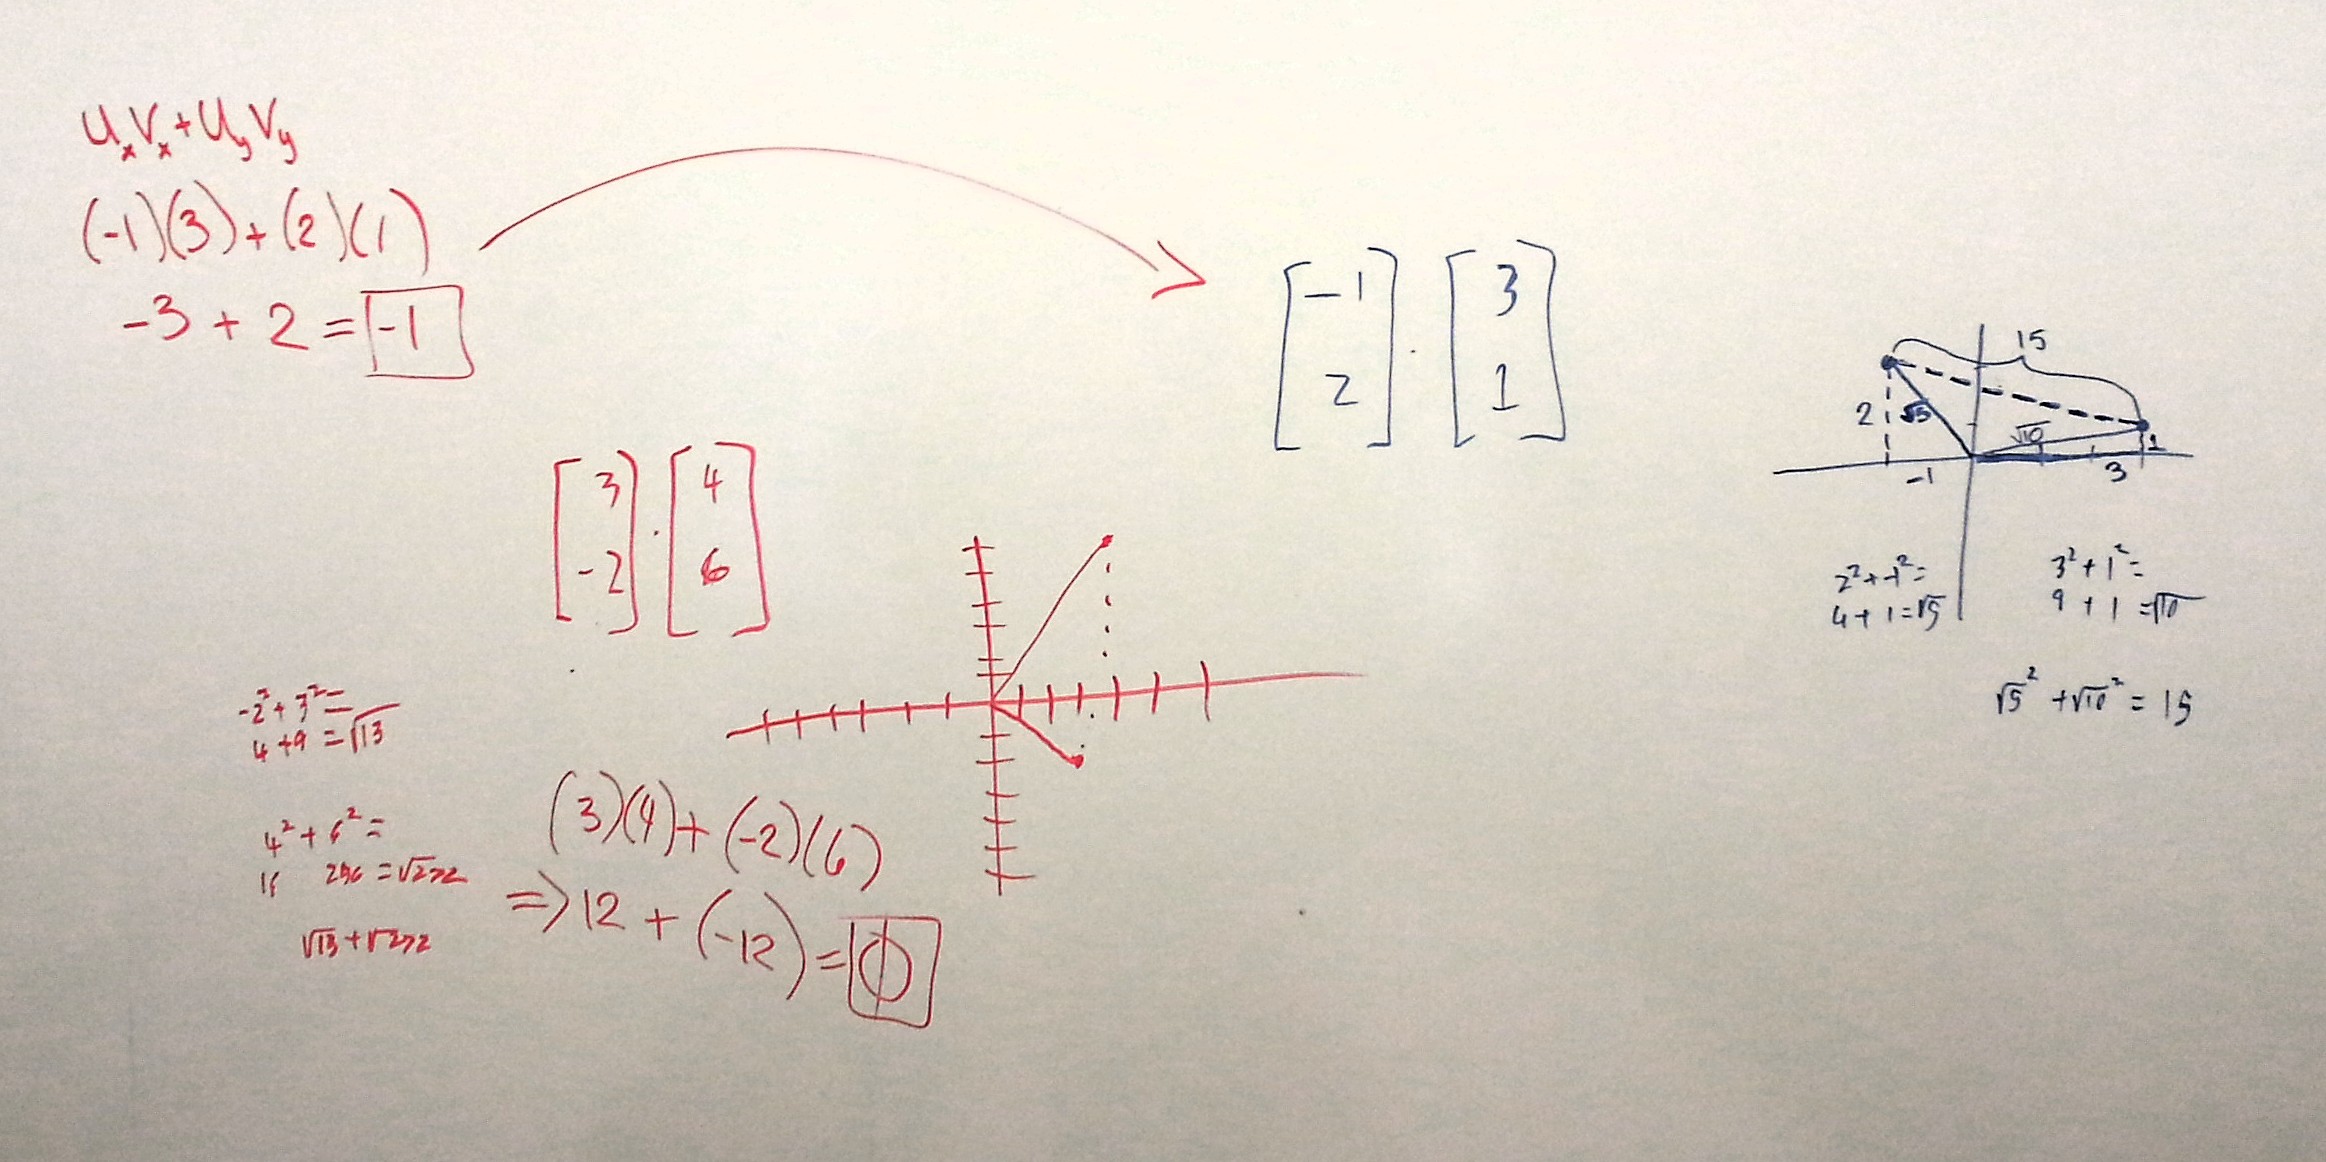 UₓVₓ+UᵧVᵧ
(-1)(3)+(2)(1)
-3 + 2 = -1
[-1 2] · [3 1]
[3 -2] · [4 6]
15
2
√5
√10
1
-1
3
2²+-1²=
4+1=√5
3²+1²=
9+1=√10
√5²+√10²=15
-2²+3²=
4+9=√13
4²+6²=
16 256=√272
√13+√272
(3)(4)+(-2)(6)
⇒12+(-12)=0